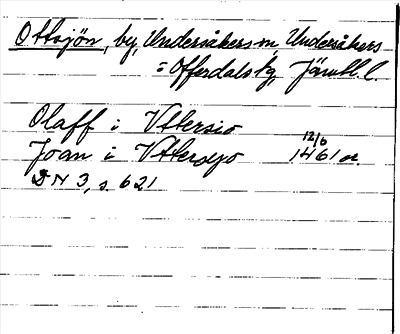 Ottsjön, by, Undersåkers sn, Undersåkers
= Offerdals tg, Jämtl. l.
Olaff i Vttersio
Joan i Vttersyo 12/6 1461 or.
DN 3, s. 621